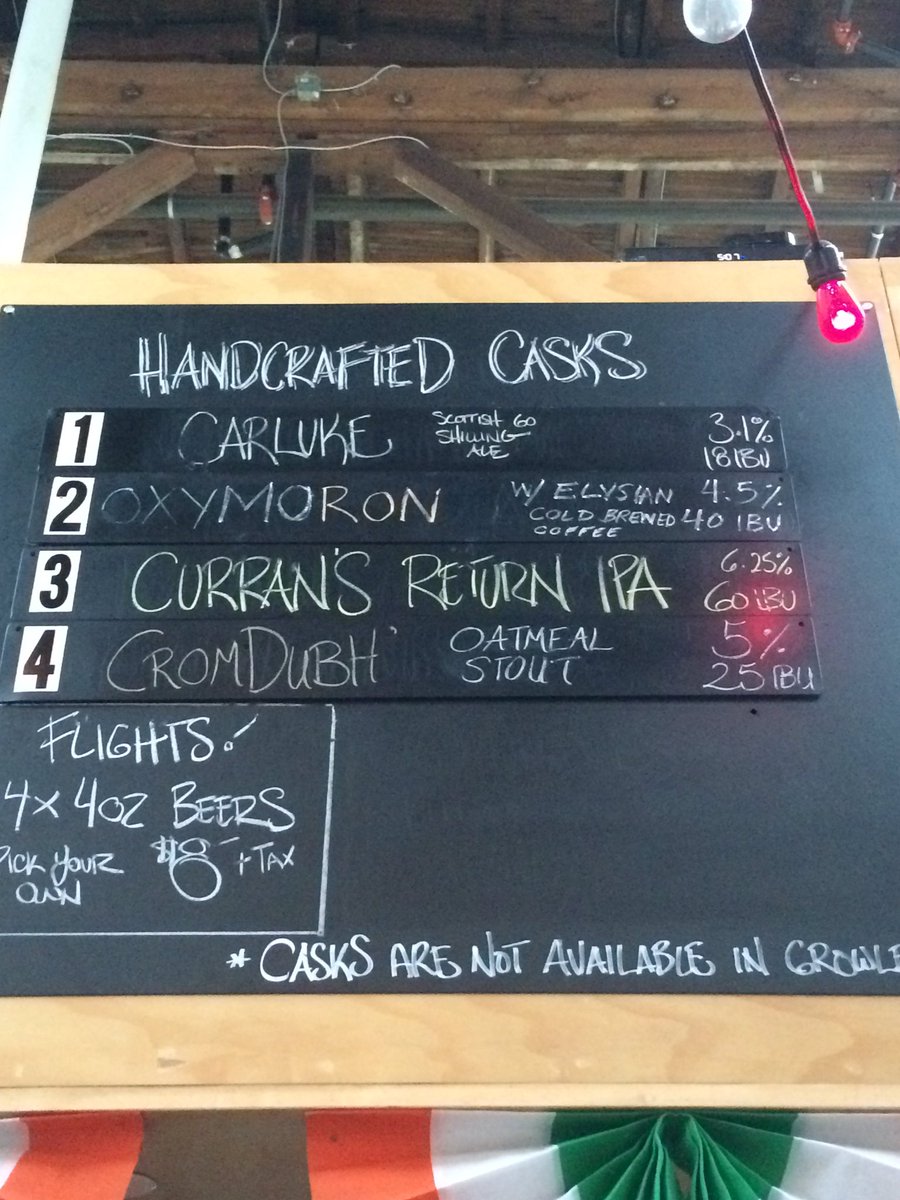 HANDCRAFTED CASKS
1 CARLUKE SCOTTISH 60 SHILLING ALE 3.1% 18 IBU
2 OXYMORON W/ ELYSIAN COLD BREWED COFFEE 4.5% 40 IBU
3 CURRAN'S RETURN IPA 6.25% 60 IBU
4 CROMDUBH OATMEAL STOUT 5% 25 IBU
FLIGHTS!
4x 4oz BEERS
PICK YOUR OWN $8 + TAX
* CASKS ARE NOT AVAILABLE IN GROWLE